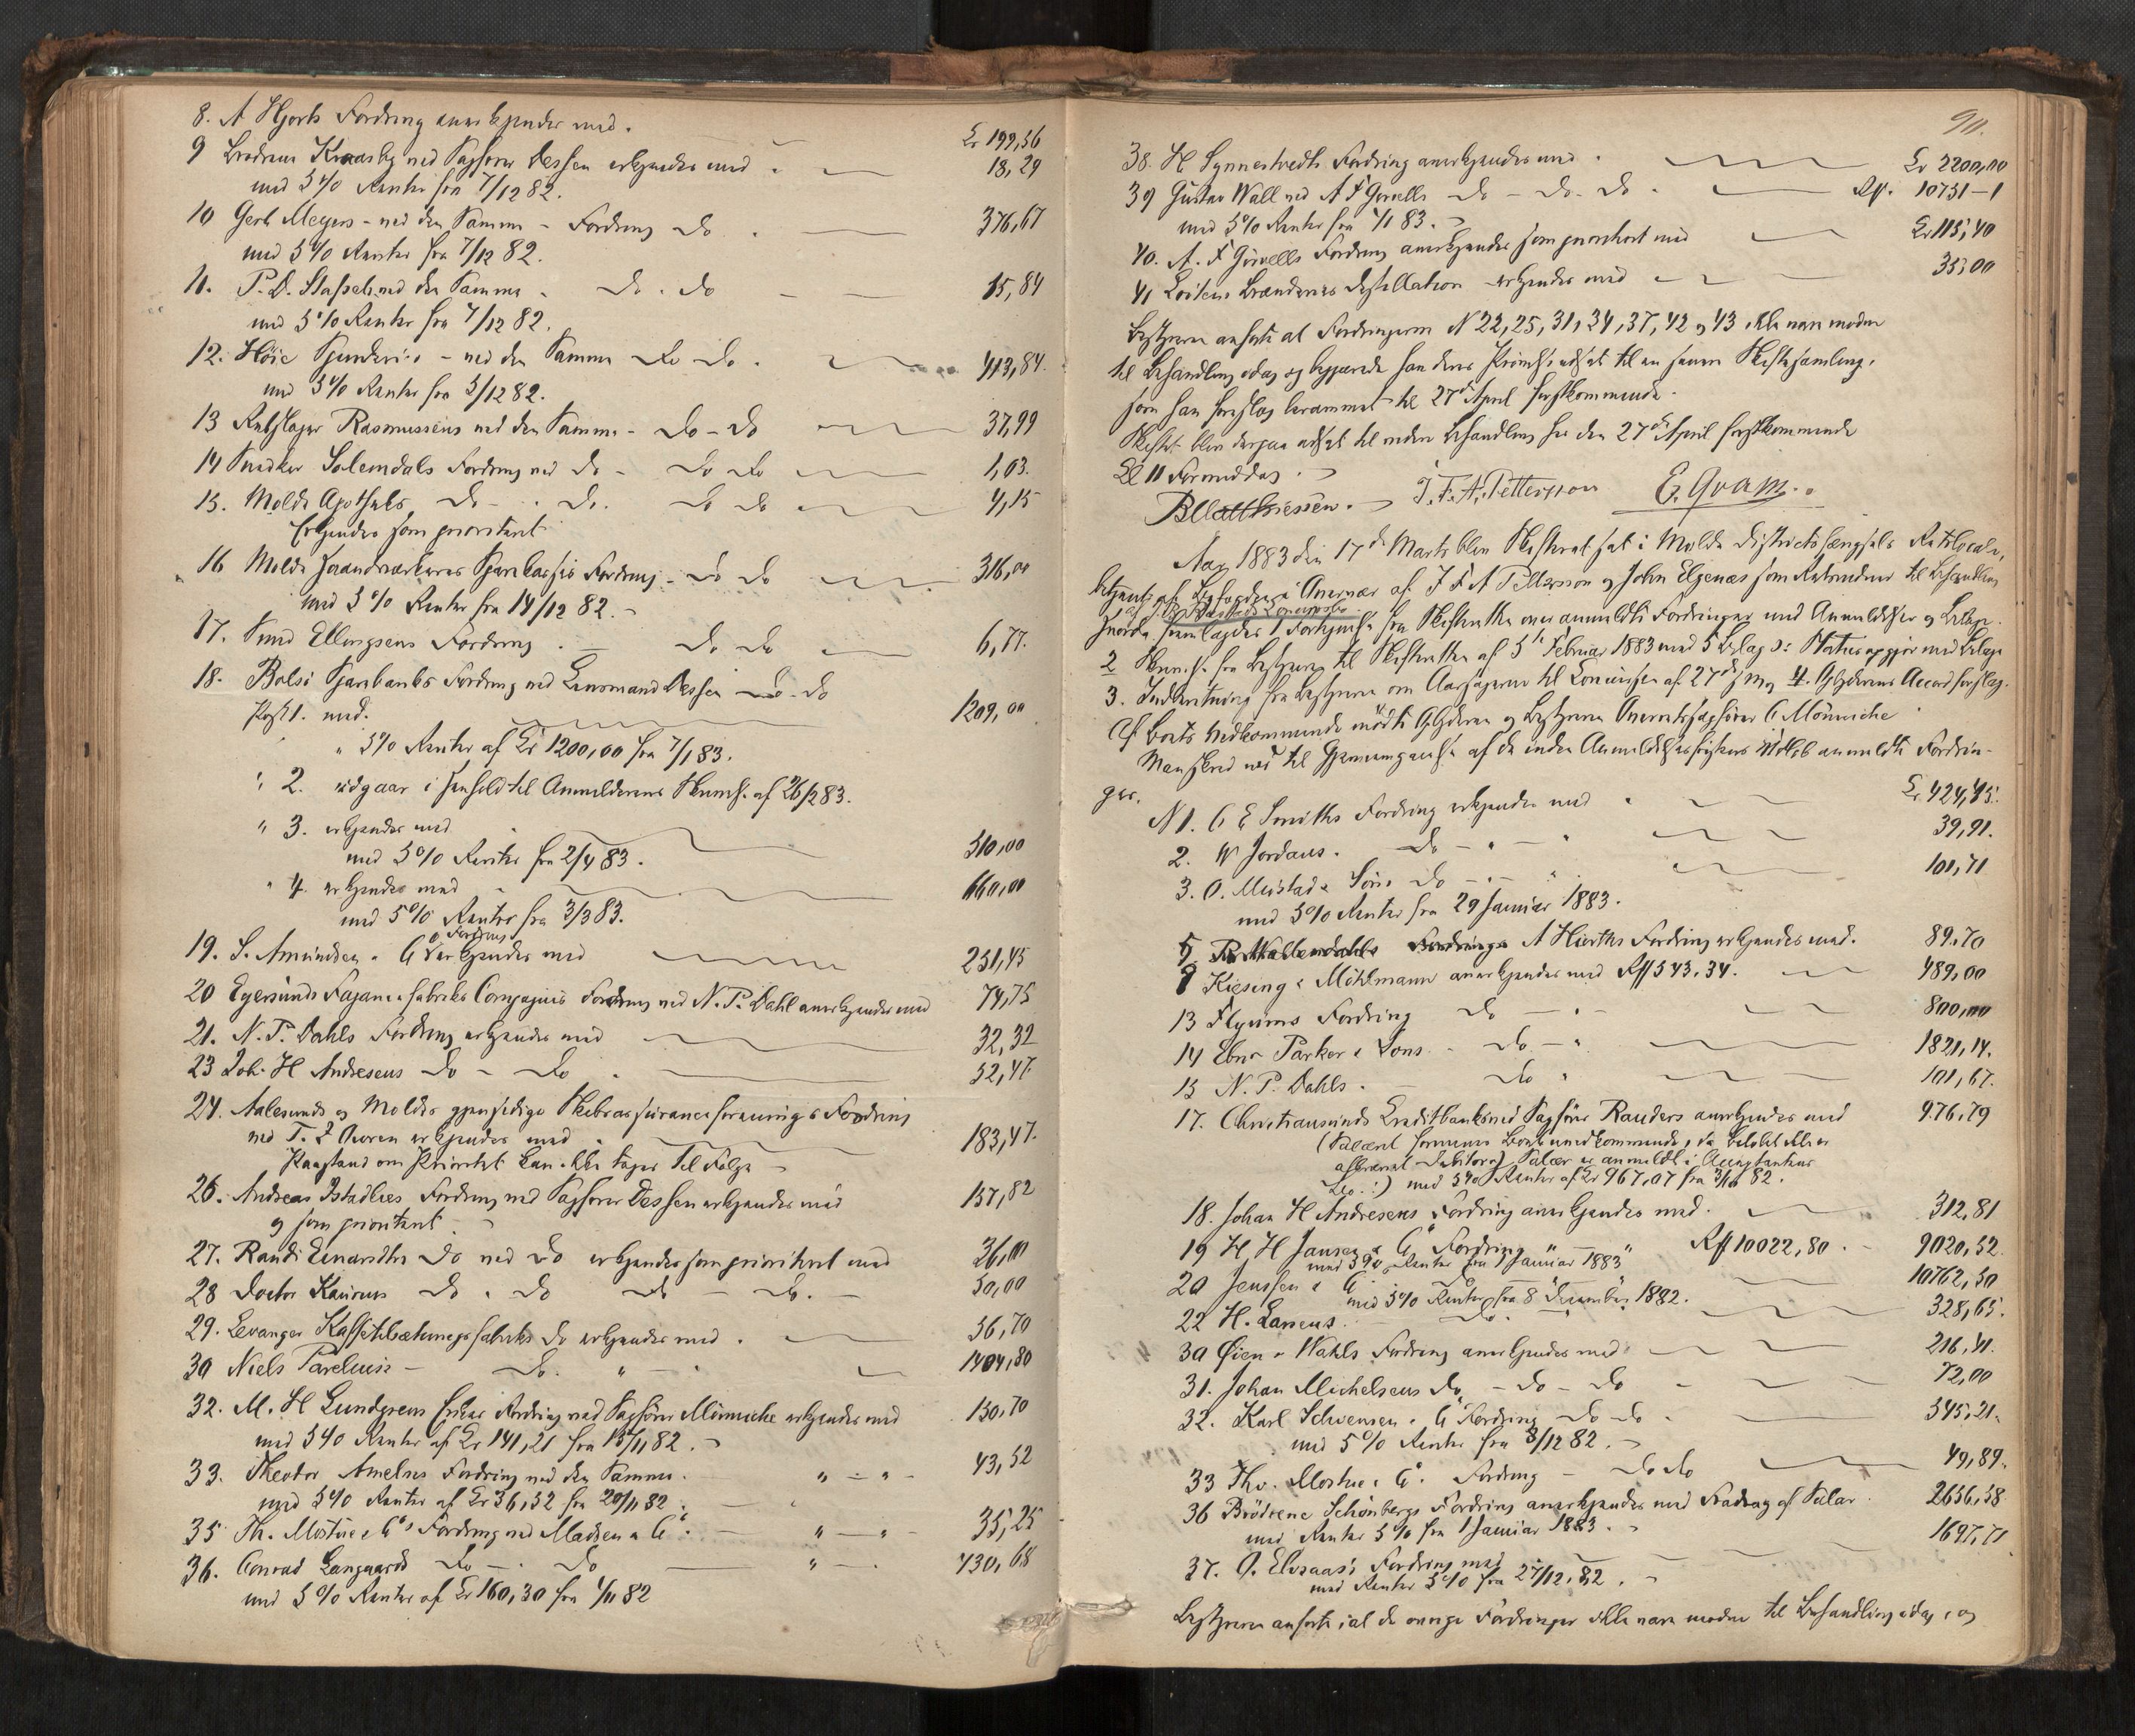 8. A Hjorts Fordring anerkjendes med. Kr 199,56
9 Brødrene Kraasby ved Sagfører Dessen erkjendes med 18,29
med 5% Renter fra 7/12 82.
10 Gerh Meyers - ved den Samme - Fordring do 376,67
med 5% Renter fra 7/12 82.
11. P. D. ved den Samme - do - do 15,84
med 5% Renter fra 7/12 82.
12. Höie - ved den Samme do do. 413,84.
med 5% Renter fra 5/12 82.
13 Rebslager Rasmussens ved den Samme - do - do 37,99
14 Snedker Solemdals Fordring ved do - do do 1,03.
15. Molde Apotheks do - do. do do 4,15
Erkjendes som prioritert
16 Molde Haandværkeres Sparekasses Fordring - do do 316,00
med 5% Renter fra 14/12 82. -
17. Smed Ellingsens Fordring do do 6,77.
18. Bolsø Sparebanks Fordring ved Lensmand Dessen do - do
Post 1. med. 1209,00
" 5% Renter af Kr 1200,00 fra 7/1 83.
" 2. udgaar i Henhold til Anmelderens Skrivelse af 26/2 83.
" 3. erkjendes med 310,00
med 5% Renter fra 2/4 83.
" 4. erkjendes med 660,00
med 5% Renter fra 3/3 83.
19. S. Amundsen & Co Fordring erkjendes med 251,45
20 Egersunds Fajance fabriks Compagnis Fordring ved N. P. Dahl anerkjendes med 74,75
21. N. P. Dahls Fordring erkjendes med 32,32
23 Joh. H Andresens do - do 52,47.
24. Aalesunds og Moldes gjensidige Skibsassuranceforenings Fordring
ved T. Owren erkjendes med 183,47.
Paastand om Prioritet kan ikke tages til Følge -
26. Andreas Fordring ved Sagfører Dessen erkjendes med 157,82
og som prioritert -
27. Randi Einarsdtr do ved do erkjendes som prioritert med 36,00
28 Doctor Kaurins do - do do - do. - 50,00
29. Levanger Kaffetilsætningsfabriks do erkjendes med . 56,70
30 Niels Parelius - do. " - " 1404,80
32. M. H Lundgrens Enkes Fordring ved Sagfører Mönniche erkjendes med 150,70
med 5% Renter af Kr 141,21 fra 15/11 82. -
33. Theodor Amelns Fordring ved den Samme. " - " - 43,52
med 5% Renter af Kr 36,52 fra 20/11 82.
35 Th. Mostue & Cos Fordring ved Madsen & Co. " - " - 35,25
36. Conrad Langaards do - do " - . 430,68
med 5% Renter af Kr 160,30 fra 1/11 82
90.
38. H Synnestvedts Fordring anerkjendes med . Kr 2200,00
39 Gustav Wall ved A F Gjervells do - do - do . Rm. 10751-1
med 5% Renter fra 1/1 83. -
40. A. F Gjervells Fordring anerkjendes som prioritert med Kr 115,40
41 Loitens Brænderies Destillation erkjendes med 35,00
Bestyreren anførte at Fordringerne N 22, 25, 31, 34, 37, 42 og 43 ikke vare modne
til Behandling idag og begjærede han deres Prøvelse udsat til en senere Skiftesamling,
som han foreslog berammet til 27de April førstkommende.
Skiftet blev derpaa udsat til videre Behandling her den 27de April førstkommende
Kl 11 Formiddag. -
BMatthiessen. - J. F. A. Petterson E. Qvam.
Aar 1883 den 17de Marts blev Skifteret sat i Molde Districtsfængsels Retslocale,
betjent af Byfogden i Overvær af J F A Petterson og John Elgenæs som Retsvidner til Behandling
af
Hvorda fremlagdes 1 Fortegnelse fra Skifteretten over anmeldte Fordringer med Anmeldelser og Bilage.
2 Skrivelse fra Bestyreren til Skifteretten af 5te Februar 1883 med 5 Bilag o: Statusopgjør med Bilage
3. Indberetning fra Bestyreren om Aarsagerne til Concursen af 27de f M og 4. Accordforslag.
Af Boets Vedkommende mødte og Bestyreren Overretssagfører C Mönniche
Man skred ved til Gjennemgaaelse af de inden Anmeldelsesfristens Udløb anmeldte Fordrin-
ger.
N 1. C E Smiths Fordring erkjendes med Kr 424,45.
2. W Jordans. do - " - " 39,91.
3. O. Mustad & Söns do - " - " 101,71
med 5% Renter fra 29 Januar 1883.
5 A Hiorths Fordring erkjendes med. 89,70
8 Kiesing & Möhlmann anerkjendes med Rm 543.34. 489,00
13 Flyums Fordring do - " - 800,00
14 Ebnr Parker & Sons - do - " 1821,14.
15 N. P. Dahls. do " 101,67.
17. Christiansunds Creditbanks ved Sagfører Rauders anerkjendes med 976,79
(Salæret Boet uvedkommende, da Beløbet ikke er
afkrævet Debitor) Salær er anmeldt i Acceptantens
Bo.:) med 5% Renter af Kr 967,07 fra 3/10 82.
18. Johan H Andresens Fordring anerkjendes med . 312,81
19 H H Jansen & Co Fordring " " Rm 10022,80. - 9020,52
med 5% Renter fra 1 Januar 1883
20 Jenssen & Co - do - " 10762,50
med 5% Renter fra 8 December 1882.
22 H. Larsens - do. 328,65.
30 Øien & Wahls Fordring anerkjendes med 216,41.
31. Johan Michelsens do. - do - do 72,00
32. Karl Schwensen & Co Fordring do - do . 545,21.
med 5% Renter fra 8/12 82. -
33 Thv. Mostue & Co. Fordring - do do 49,89.
36 Brödrene Schönbergs Fordring anerkjendes med Fradrag af Salær. 2656,58.
med Renter 5% fra 1 Januar 1883. -
37. O. Elvsaas's Fordring med 1697,71
med Renter 5% fra 27/12. 82. -
Bestyreren anførte, at de øvrige Fordringer ikke vare modne til Behandling idag, og